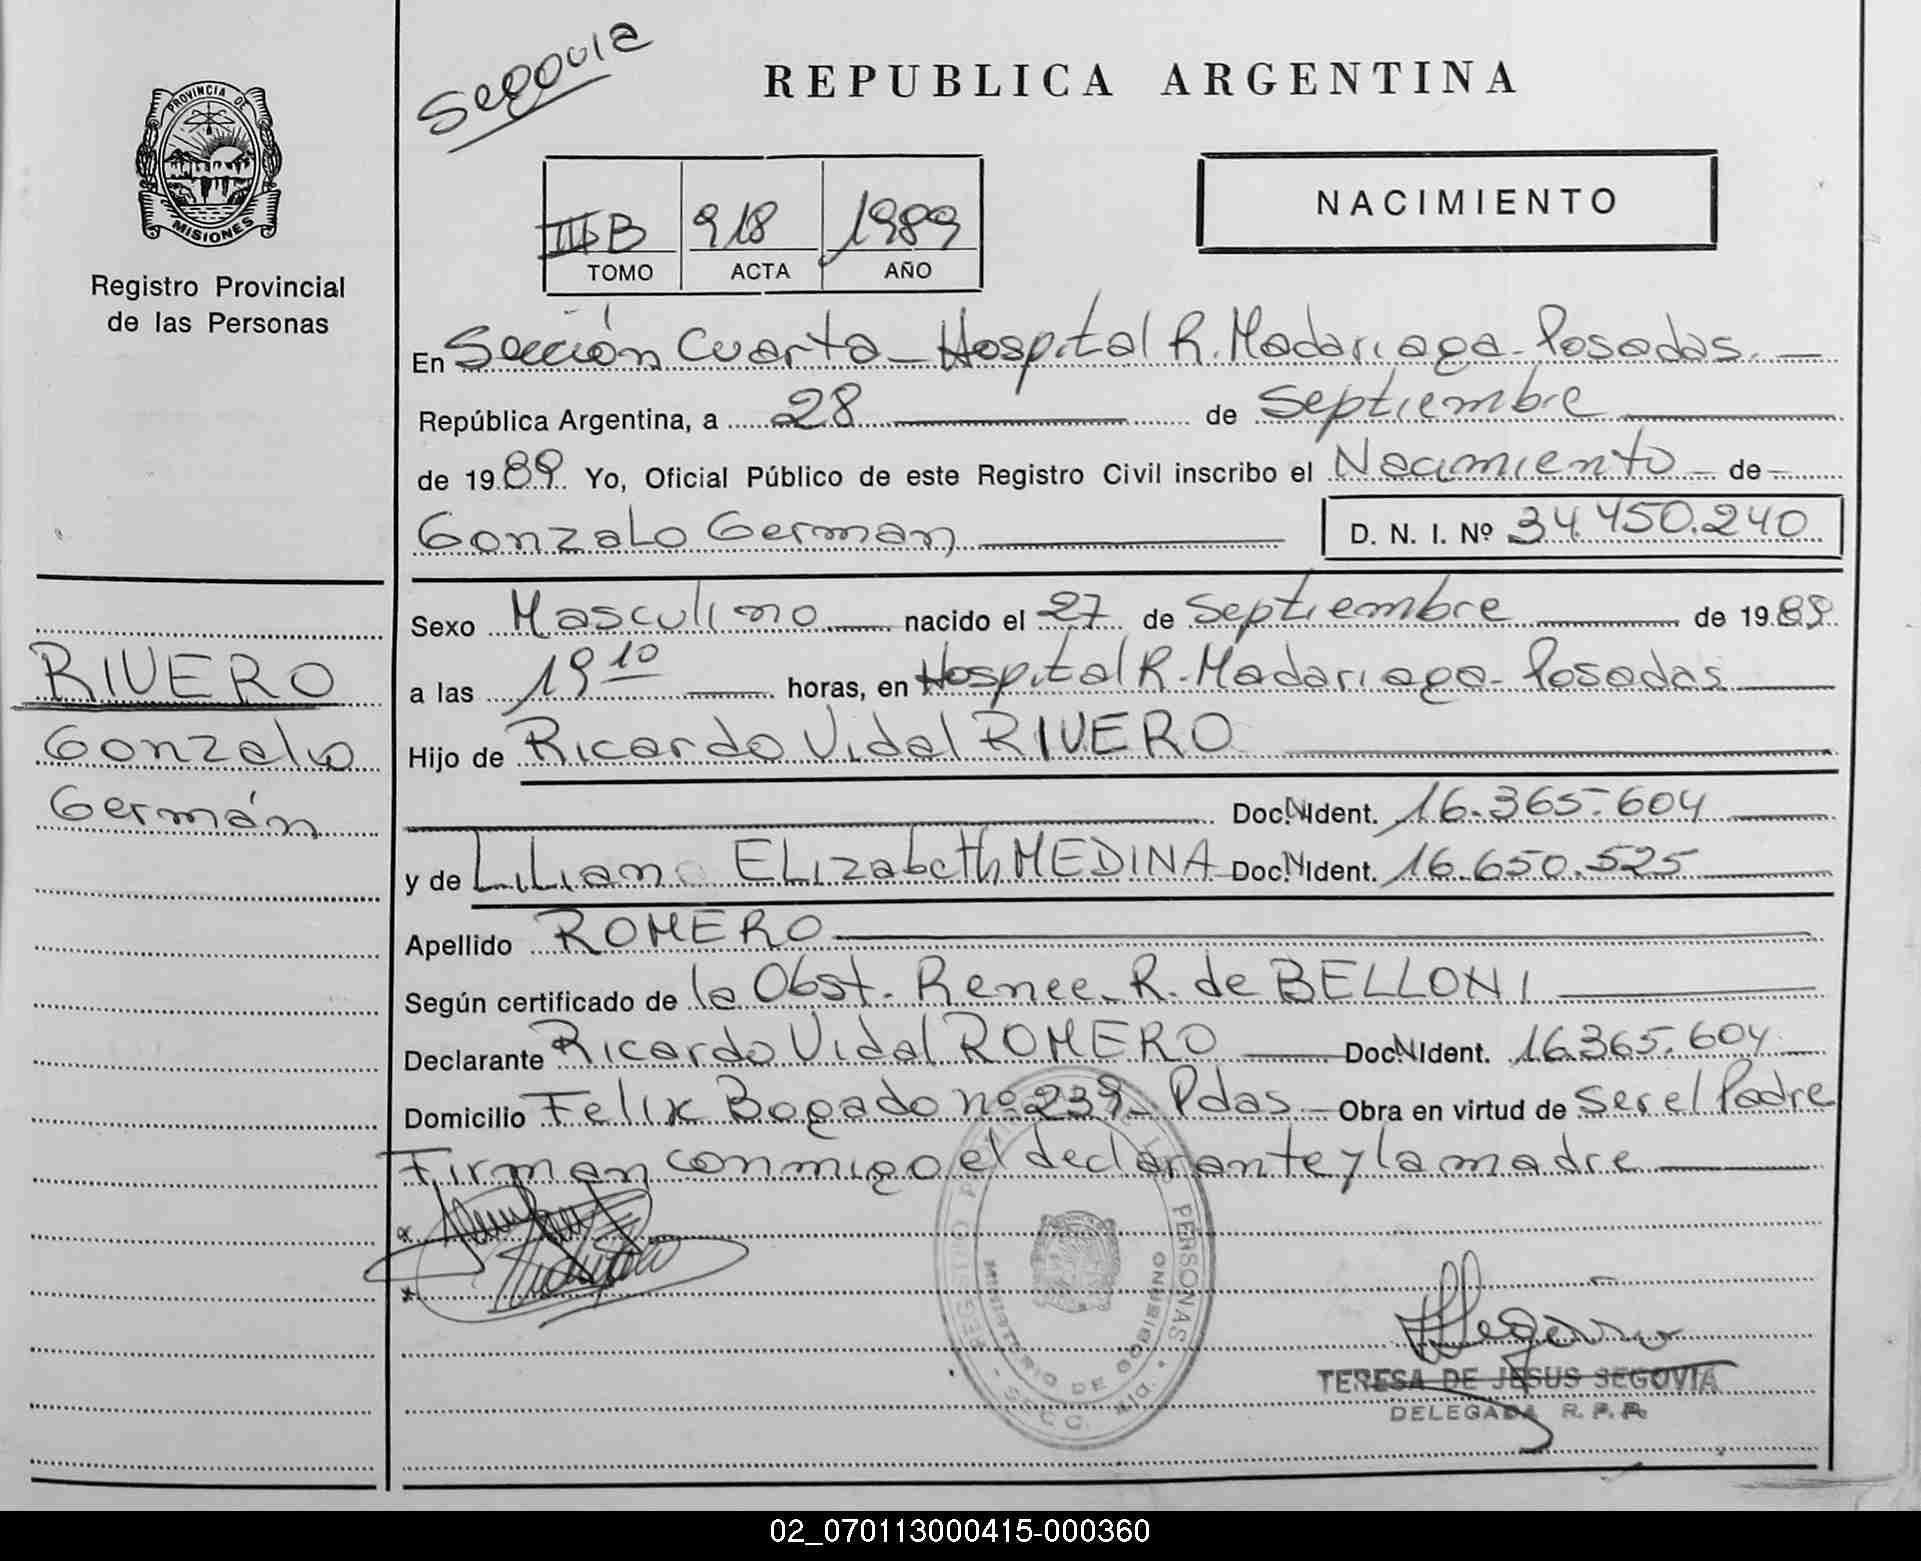 Segovia
REPUBLICA ARGENTINA
PROVINCIA DE
MISIONES
Registro Provincial
de las Personas
III B 918 1989
TOMO ACTA AÑO
NACIMIENTO
En Sección Cuarta - Hospital R. Madariaga - Posadas. -
República Argentina, a 28 de Septiembre
de 1989 Yo, Oficial Público de este Registro Civil inscribo el Nacimiento - de -
Gonzalo German D. N. I. Nº 34.450.240
Sexo Masculino nacido el 27 de Septiembre de 1989
a las 19 10 horas, en Hospital R. Madariaga - Posadas
Hijo de Ricardo Vidal RIVERO
Doc. N Ident. 16.365.604
y de Liliana ELizabeth MEDINA Doc. N Ident. 16.650.525
Apellido ROMERO
Según certificado de la Obst. Renee R. de BELLONI
Declarante Ricardo Vidal ROMERO Doc. N Ident. 16.365.604
Domicilio Felix Bogado nº 239 - Pdas. - Obra en virtud de Ser el Padre
Firman conmigo el declarante y la madre
RIVERO
Gonzalo
Germán
PERSONAS
MINISTERIO DE GOBIERNO
TERESA DE JESUS SEGOVIA
DELEGADA R. P. P.
02_070113000415-000360